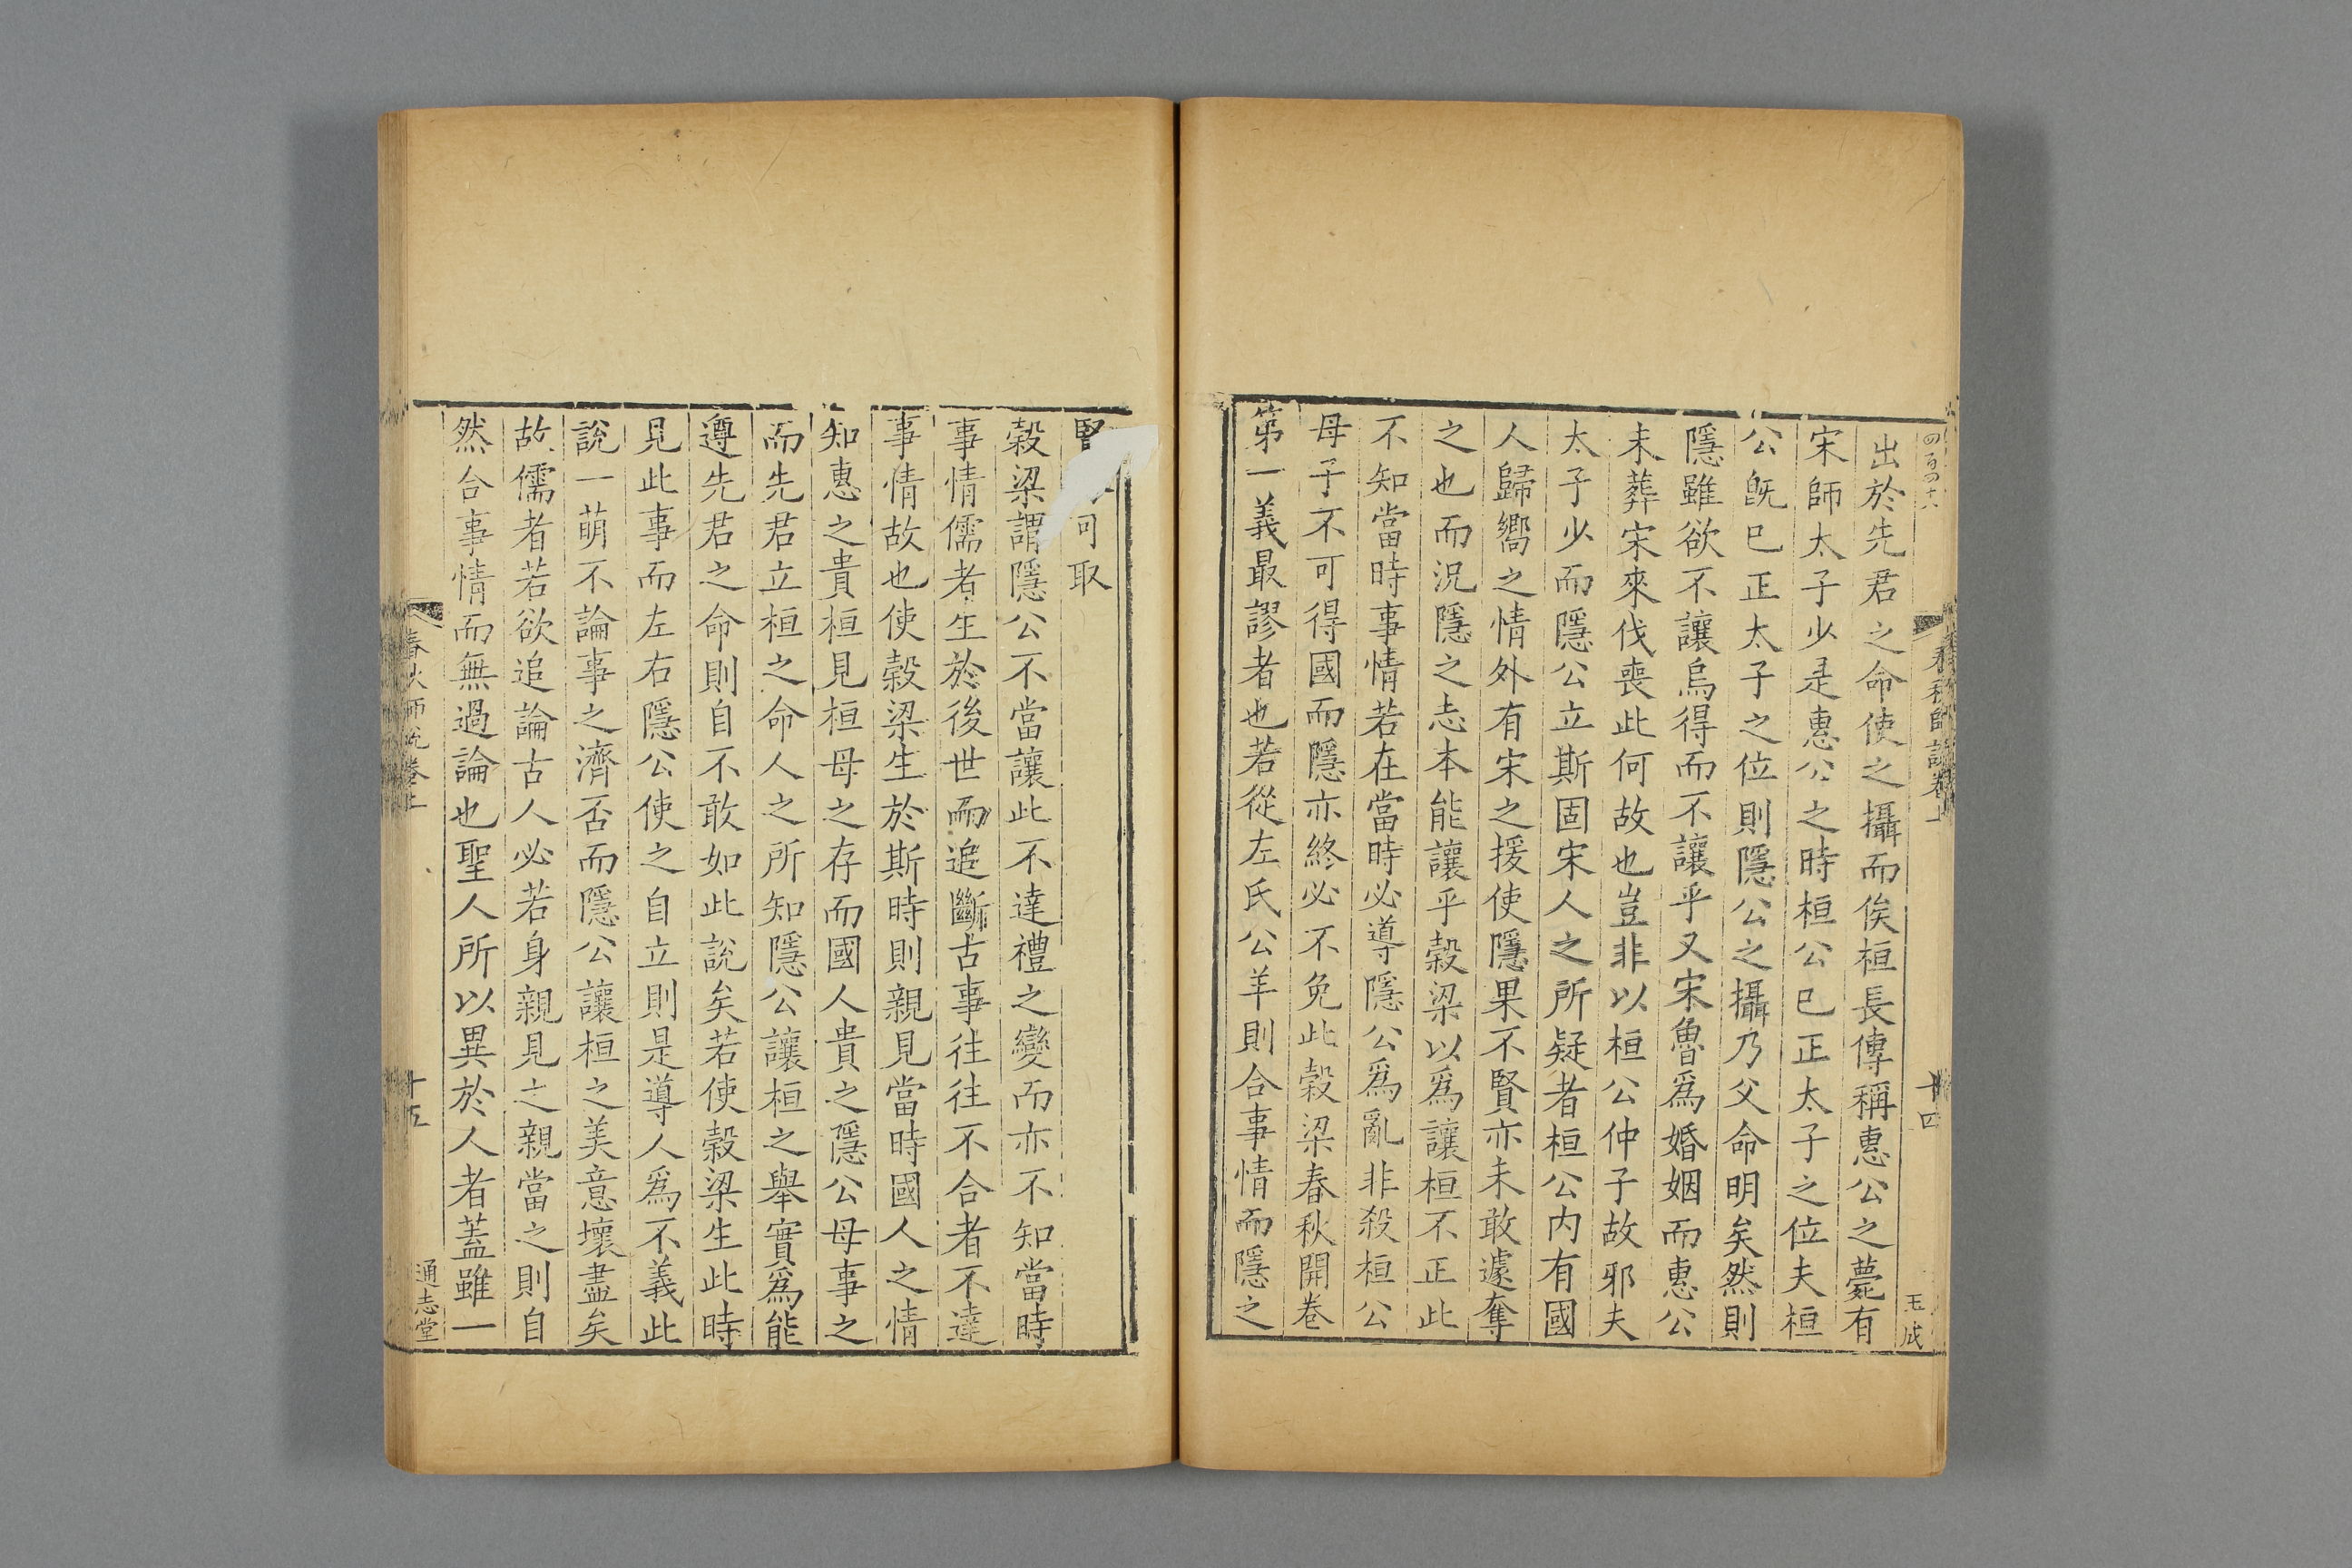 四百四十六
春秋師說卷上
十四
玉成
出於先君之命使之攝而俟桓長傳稱惠公之薨有
宋師太子少是惠公之時桓公已正太子之位夫桓
公旣已正太子之位則隱公之攝乃父命明矣然則
隱雖欲不讓烏得而不讓乎又宋魯爲婚姻而惠公
未葬宋來伐喪此何故也豈非以桓公仲子故邪夫
太子少而隱公立斯固宋人之所疑者桓公内有國
人歸嚮之情外有宋之援使隱果不賢亦未敢遽奪
之也而況隱之志本能讓乎榖梁以爲讓桓不正此
不知當時事情若在當時必導隱公爲亂非殺桓公
母子不可得國而隱亦終必不免此榖梁春秋開卷
第一義最謬者也若從左氏公羊則合事情而隱之
賢可取
榖梁謂隱公不當讓此不達禮之變而亦不知當時
事情儒者生於後世而追斷古事往往不合者不達
事情故也使榖梁生於斯時則親見當時國人之情
知惠之貴桓見桓母之存而國人貴之隱公母事之
而先君立桓之命人之所知隱公讓桓之舉實爲能
遵先君之命則自不敢如此說矣若使榖梁生此時
見此事而左右隱公使之自立則是導人爲不義此
說一萌不論事之濟否而隱公讓桓之美意壞盡矣
故儒者若欲追論古人必若身親見之親當之則自
然合事情而無過論也聖人所以異於人者蓋雖一
春秋師說卷上
十五
通志堂